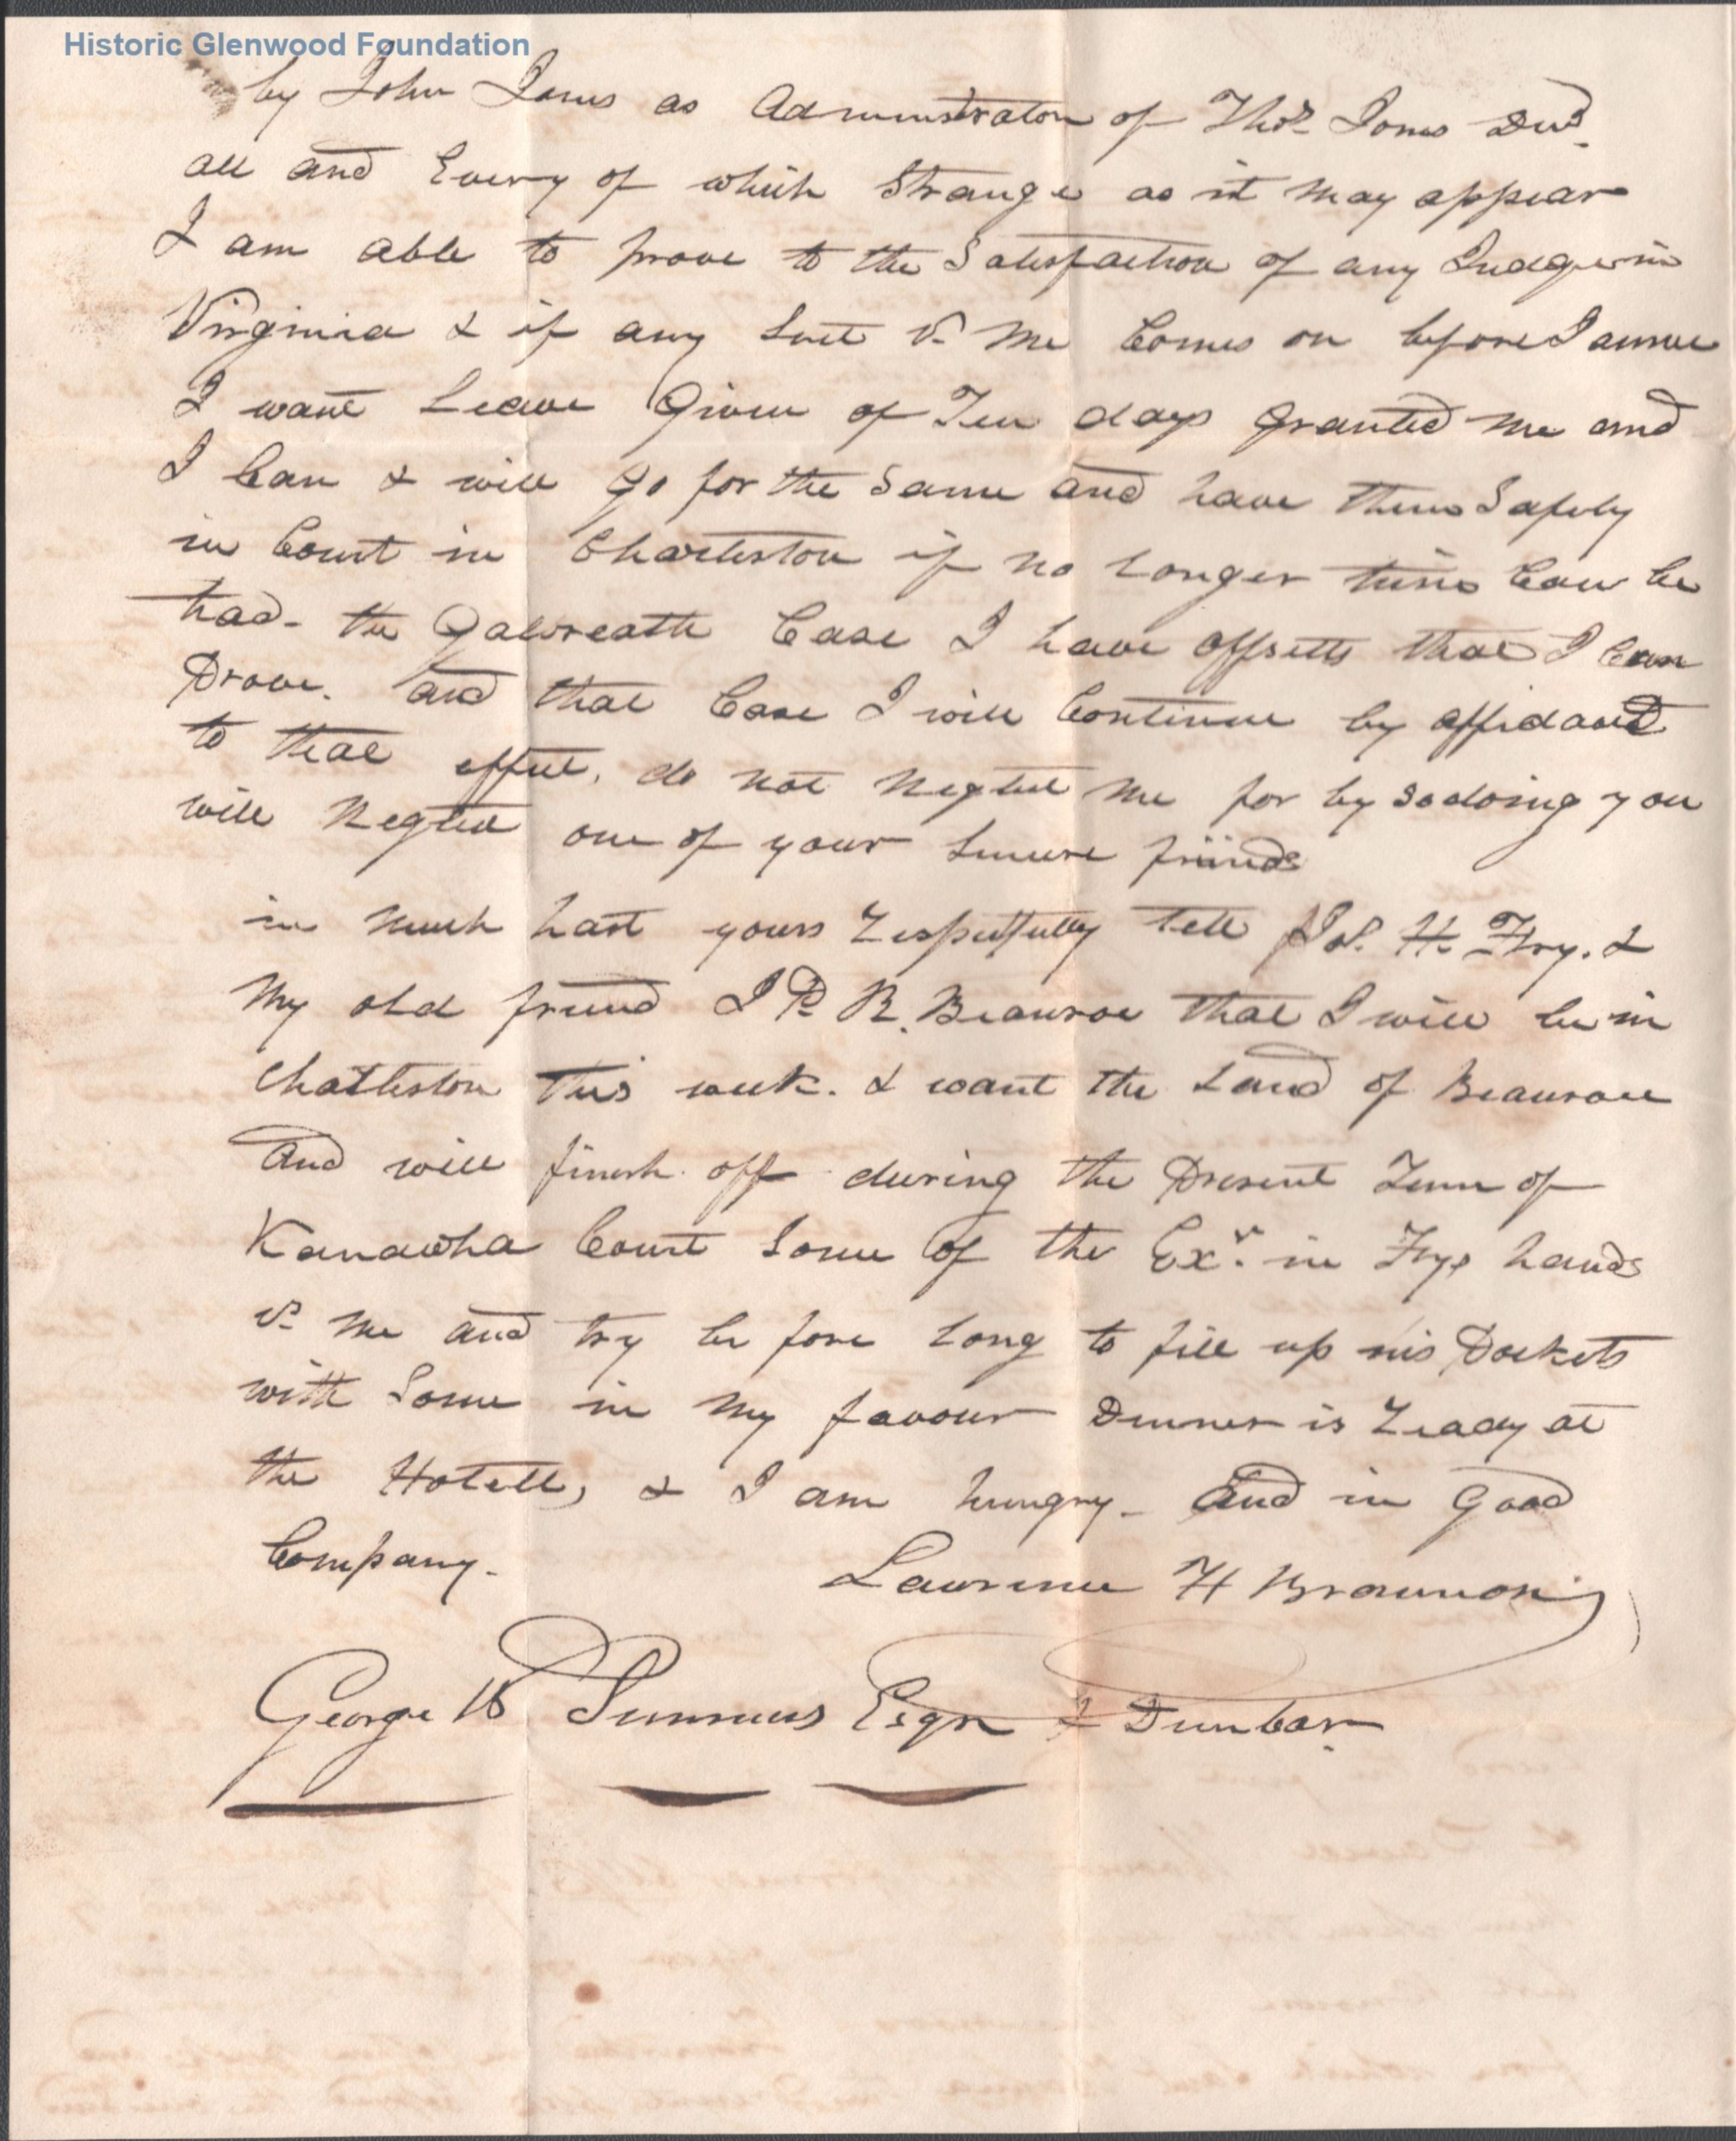 Historic Glenwood Foundation
by John Jones as Administrator of Thos Jones Decd.
all and Every of which Strange as it may appear
I am able to prove to the Satisfaction of any Judge in
Virginia & if any Suit vs me Comes on before I arrive
I want Leave Given of Ten days granted me and
I Can & will go for the Same and have them Safely
in Court in Charleston if no longer time Can be
had - the Galbreath Case I have offsetts that I Can
Prove. and that Case I will Continue by affidavit
to that effect. do not Neglect me for by so doing you
will Neglect one of your Sincere friends
in much hast yours Respectfully tell Jos. H. Fry. &
My old friend J P R. Beauroe that I will be in
Charleston this week. & want the Land of Beauroe
And will finish off during the Present Term of
Kanawha Court Some of the Exs. in Frys hands
vs me and try be fore long to fill up his Dockets
with Some in My favour Dinner is Ready at
the Hotell, & I am hungry - And in Good
Company.
Lawrence H Brannon
George W Summers Esqr & Dunbar